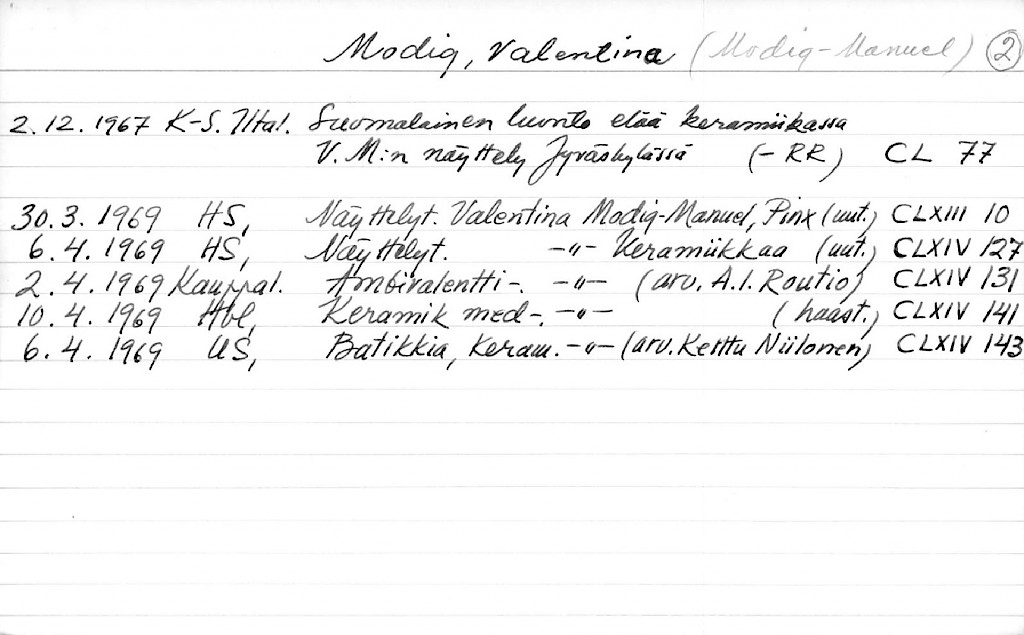 Modig, Valentina (Modig-Manuel) 2
2.12.1967 K-S. Iltal. Suomalainen luonto elää keramiikassa
V. M:n näyttely Jyväskylässä (- RR) CL 77
30.3. 1969 HS, Näyttelyt. Valentina Modig-Manuel, Pinx (uut.) CLXIII 10
6.4. 1969 HS, Näyttelyt. -"- Keramiikkaa (uut.) CLXIV 127
2.4. 1969 Kauppal. Ambivalentti -. -"- (arv. A.I. Routio) CLXIV 131
10.4. 1969 Hbl, Keramik med -. -"- (haast.) CLXIV 141
6.4. 1969 US, Batikkia, keram. -"- (arv. Kerttu Niilonen) CLXIV 143